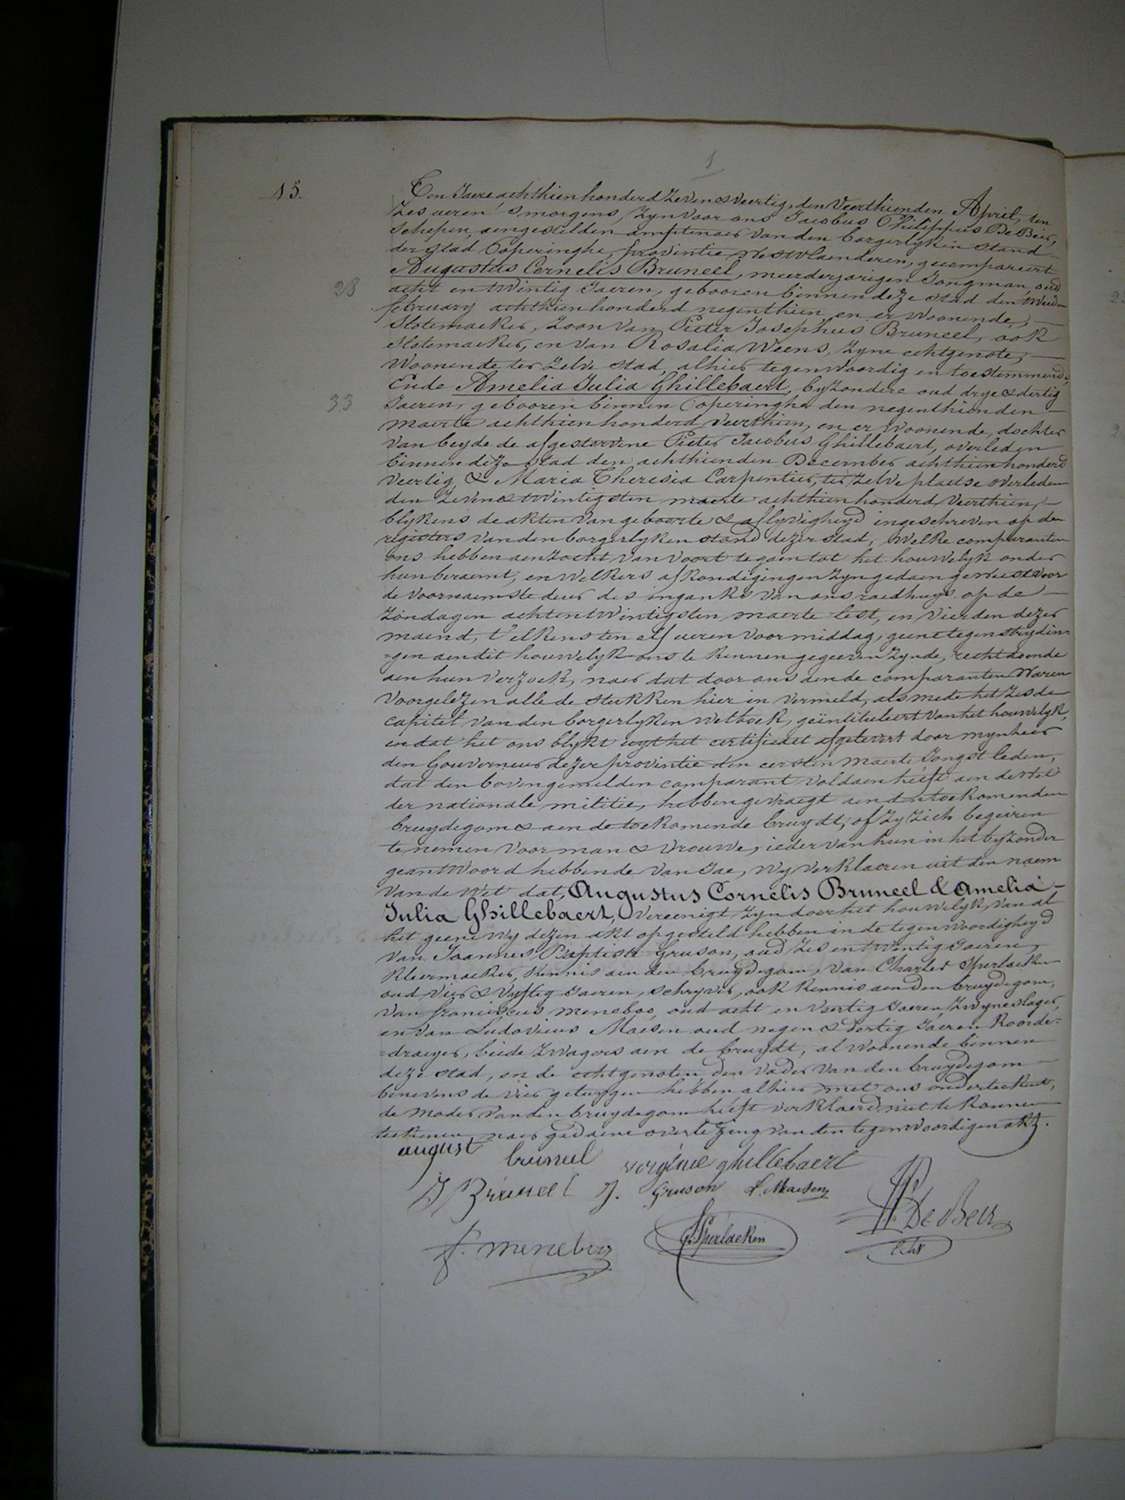 1
15.
Ten Jaere achthien honderd zeven & veertig, den veerthienden April, ten
zes ueren s'morgens, zyn voor ons Jacobus Philippus De Beir,
schepen, aengestelden amptenaer van den borgerlyken stand
der stad Poperinghe, provintie Westvlaenderen, gecompareert
Augustus Cornelis Bruneel, meerderjarigen Jongman, oud
28
acht en twintig Jaeren, gebooren binnen deze stad den
february achthien honderd negenthien, en er woonende,
Slotemaeker, Zoon van Pieter Josephus Bruneel, ook
Slotemaeker, en van Rosalia Weens, zyne echtgenote,
woonende ter zelve stad, alhier tegenwoordig en toestemmende,
Ende Amelia Julia Ghillebaert, byzondere oud drye & dertig
33
Jaeren, gebooren binnen Poperinghe den negenthienden
maerte achthien honderd veerthien, en er woonende, dochter
van beyde de afgestorvene Pieter Jacobus Ghillebaert, overleden
binnen deze stad den achthienden December achthien honderd
veertig, & Maria Theresia Carpentier, ter zelve plaetse overleden
den zeven & twintigsten maerte achthien honderd veerthien,
blykens de akten van geboorte & aflyvigheyd ingeschreven op de
registers van den borgerlyken stand dezer stad, welke comparanten
ons hebben aenzocht van voort te gaen tot het houwelyk onder
hun beraemt, en welkers afkondigingen zyn gedaen geweest voor
de voornaemste deur des ingangs van ons raedhuys op de
zondagen achtentwintigsten maerte lest, en vierden dezer
maend, t'elkens ten elf ueren voormiddag, geene tegenstrydin-
-gen aen dit houwelyk ons te kennen gegeeven zynde, recht doende
aen hun verzoek, naer dat door ons aen de comparanten waren
voorgelezen alle de stukken hier in vermeld, als mede het zesde
capitel van den borgerlyken wetboek, geïntituleert van het houwelyk,
en dat het ons blykt uyt het certificaet afgelevert door mynheer
den Gouverneur dezer provintie den eersten maerte Jongst leden,
dat den bovengemelden comparant voldaen heeft aen de wet
der nationale militie, hebben gevraegt aen den toekomenden
bruydegom & aen de toekomende bruydt, of zy zich begeiren
te nemen voor man & vrouwe, ieder van hun in het byzonder
geantwoord hebbende van Jae, wy verklaeren uit den naem
van de wet dat, Augustus Cornelis Bruneel & Amelia
Julia Ghillebaert, vereenigt zyn door het houwelyk, van al
het geene wy dezen akt opgesteld hebben in de tegenwoordigheyd
van Joannes Baptiste Gruson, oud zes en twintig Jaeren,
kleermaeker, kennis aen den bruydegom, van Charles Sperlaeken
oud vier & vyftig Jaeren, schryver, ook kennis aen den bruydegom,
van franciscus meneboo, oud acht en veertig Jaeren, Zwyneslager,
en van Ludovicus Maesen oud negen & dertig Jaeren Koorde-
-draeyer, beide zwagers aen de bruydt, al woonende binnen
deze stad, en de echtgenoten den vader van den bruydegom
benevens de vier getuygen hebben alhier met ons onderteekent,
de moeder van den bruydegom heeft verklaerd niet te konnen
teekenen, naer gedaene overlezing van den tegenwoordigen akt.
august bruneel virginie ghillebaert
J Bruneel J. Gruson L. Maesen
f. meneboo Sperlaeken De Beir